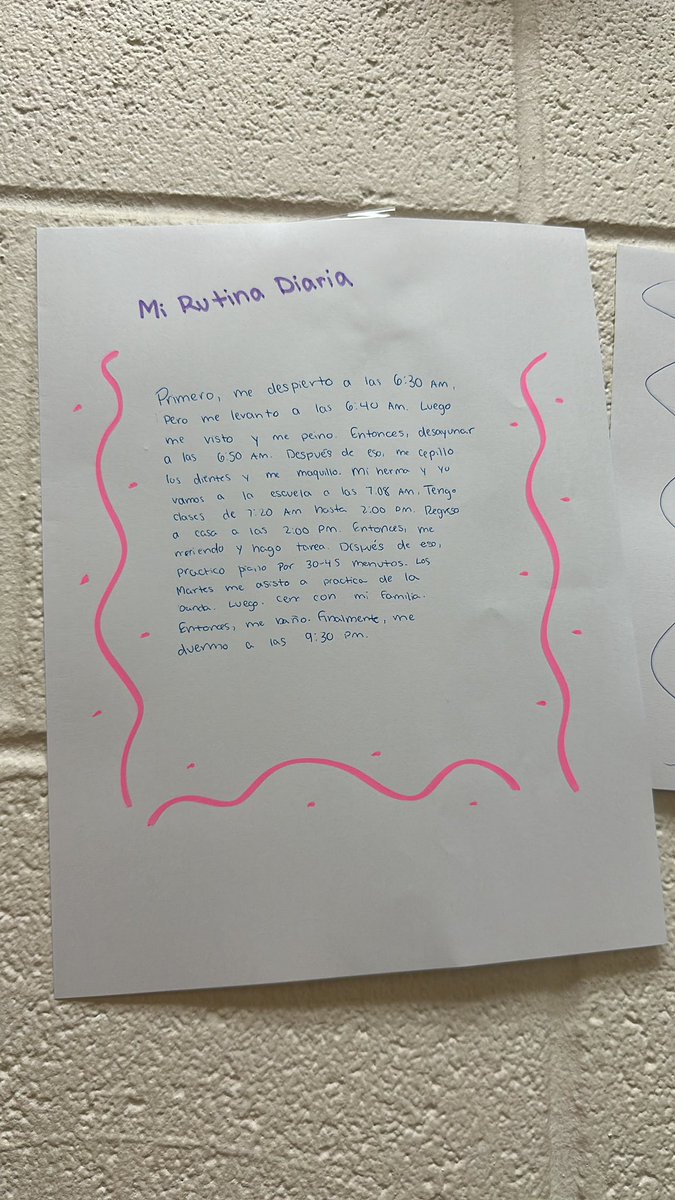 Mi Rutina Diaria
Primero, me despierto a las 6:30 AM.
Pero me levanto a las 6:40 AM. Luego
me visto y me peino. Entonces, desayunar
a las 6:50 AM. Después de eso, me cepillo
los dientes y me maquillo. Mi herma y yo
vamos a la escuela a las 7:08 AM. Tengo
clases de 7:20 AM hasta 2:00 PM. Regreso
a casa a las 2:00 PM. Entonces, me
meriendo y hago tarea. Después de eso,
practico piano por 30-45 menutos. Los
Martes me asisto a practica de la
banda. Luego. cen con mi familia.
Entonces, me baño. Finalmente, me
duermo a las 9:30 PM.